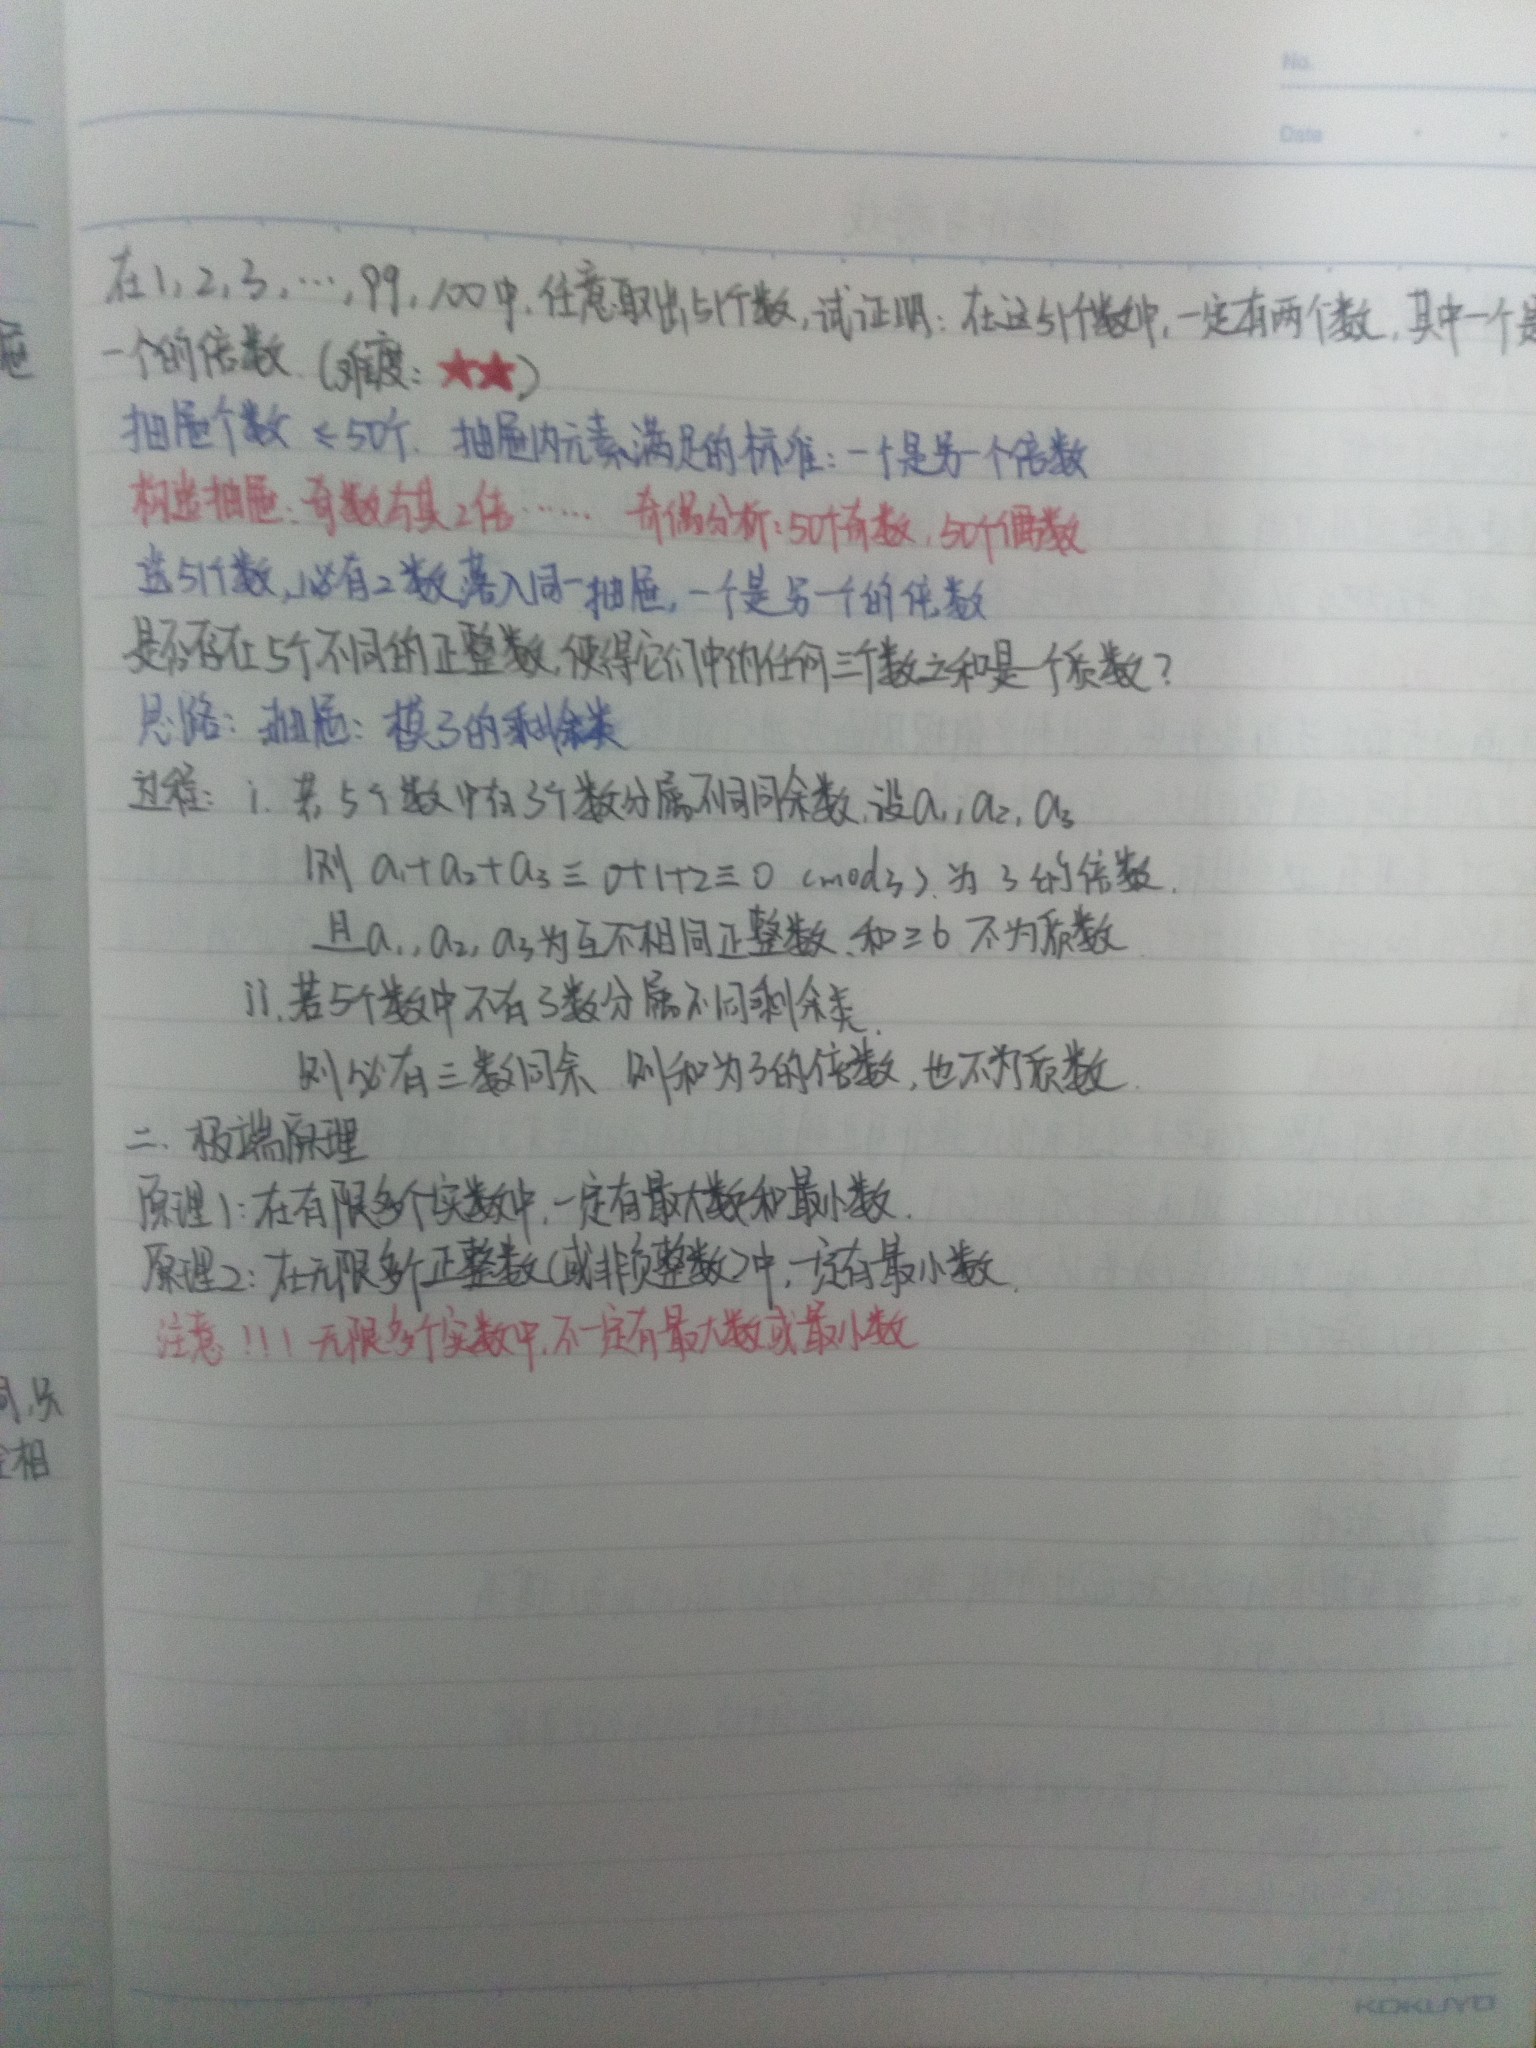 No.
Date
在1,2,3,…,99,100中,任意取出51个数,试证明:在这51个数中,一定有两个数,其中一个是
一个的倍数.(难度:★★)
抽屉个数≤50个. 抽屉内元素满足的标准:一个是另一个倍数
构造抽屉:奇数与其2倍…… 奇偶分析:50个奇数,50个偶数
选51个数,必有2数落入同一抽屉,一个是另一个的倍数
是否存在5个不同的正整数,使得它们中的任何三个数之和是一个质数?
思路:抽屉:模3的剩余类
过程:i.若5个数中有3个数分属不同同余数,设a₁,a₂,a₃
则 a₁+a₂+a₃≡0+1+2≡0 (mod3).为3的倍数.
且a₁,a₂,a₃为互不相同正整数,和≥6 不为质数
ii.若5个数中不有3数分属不同剩余类.
则必有三数同余 则和为3的倍数,也不为质数.
二.极端原理
原理1:在有限多个实数中,一定有最大数和最小数.
原理2:在无限多个正整数(或非负整数)中,一定有最小数.
注意!!!无限多个实数中,不一定有最大数或最小数
屉
相
KOKUYO